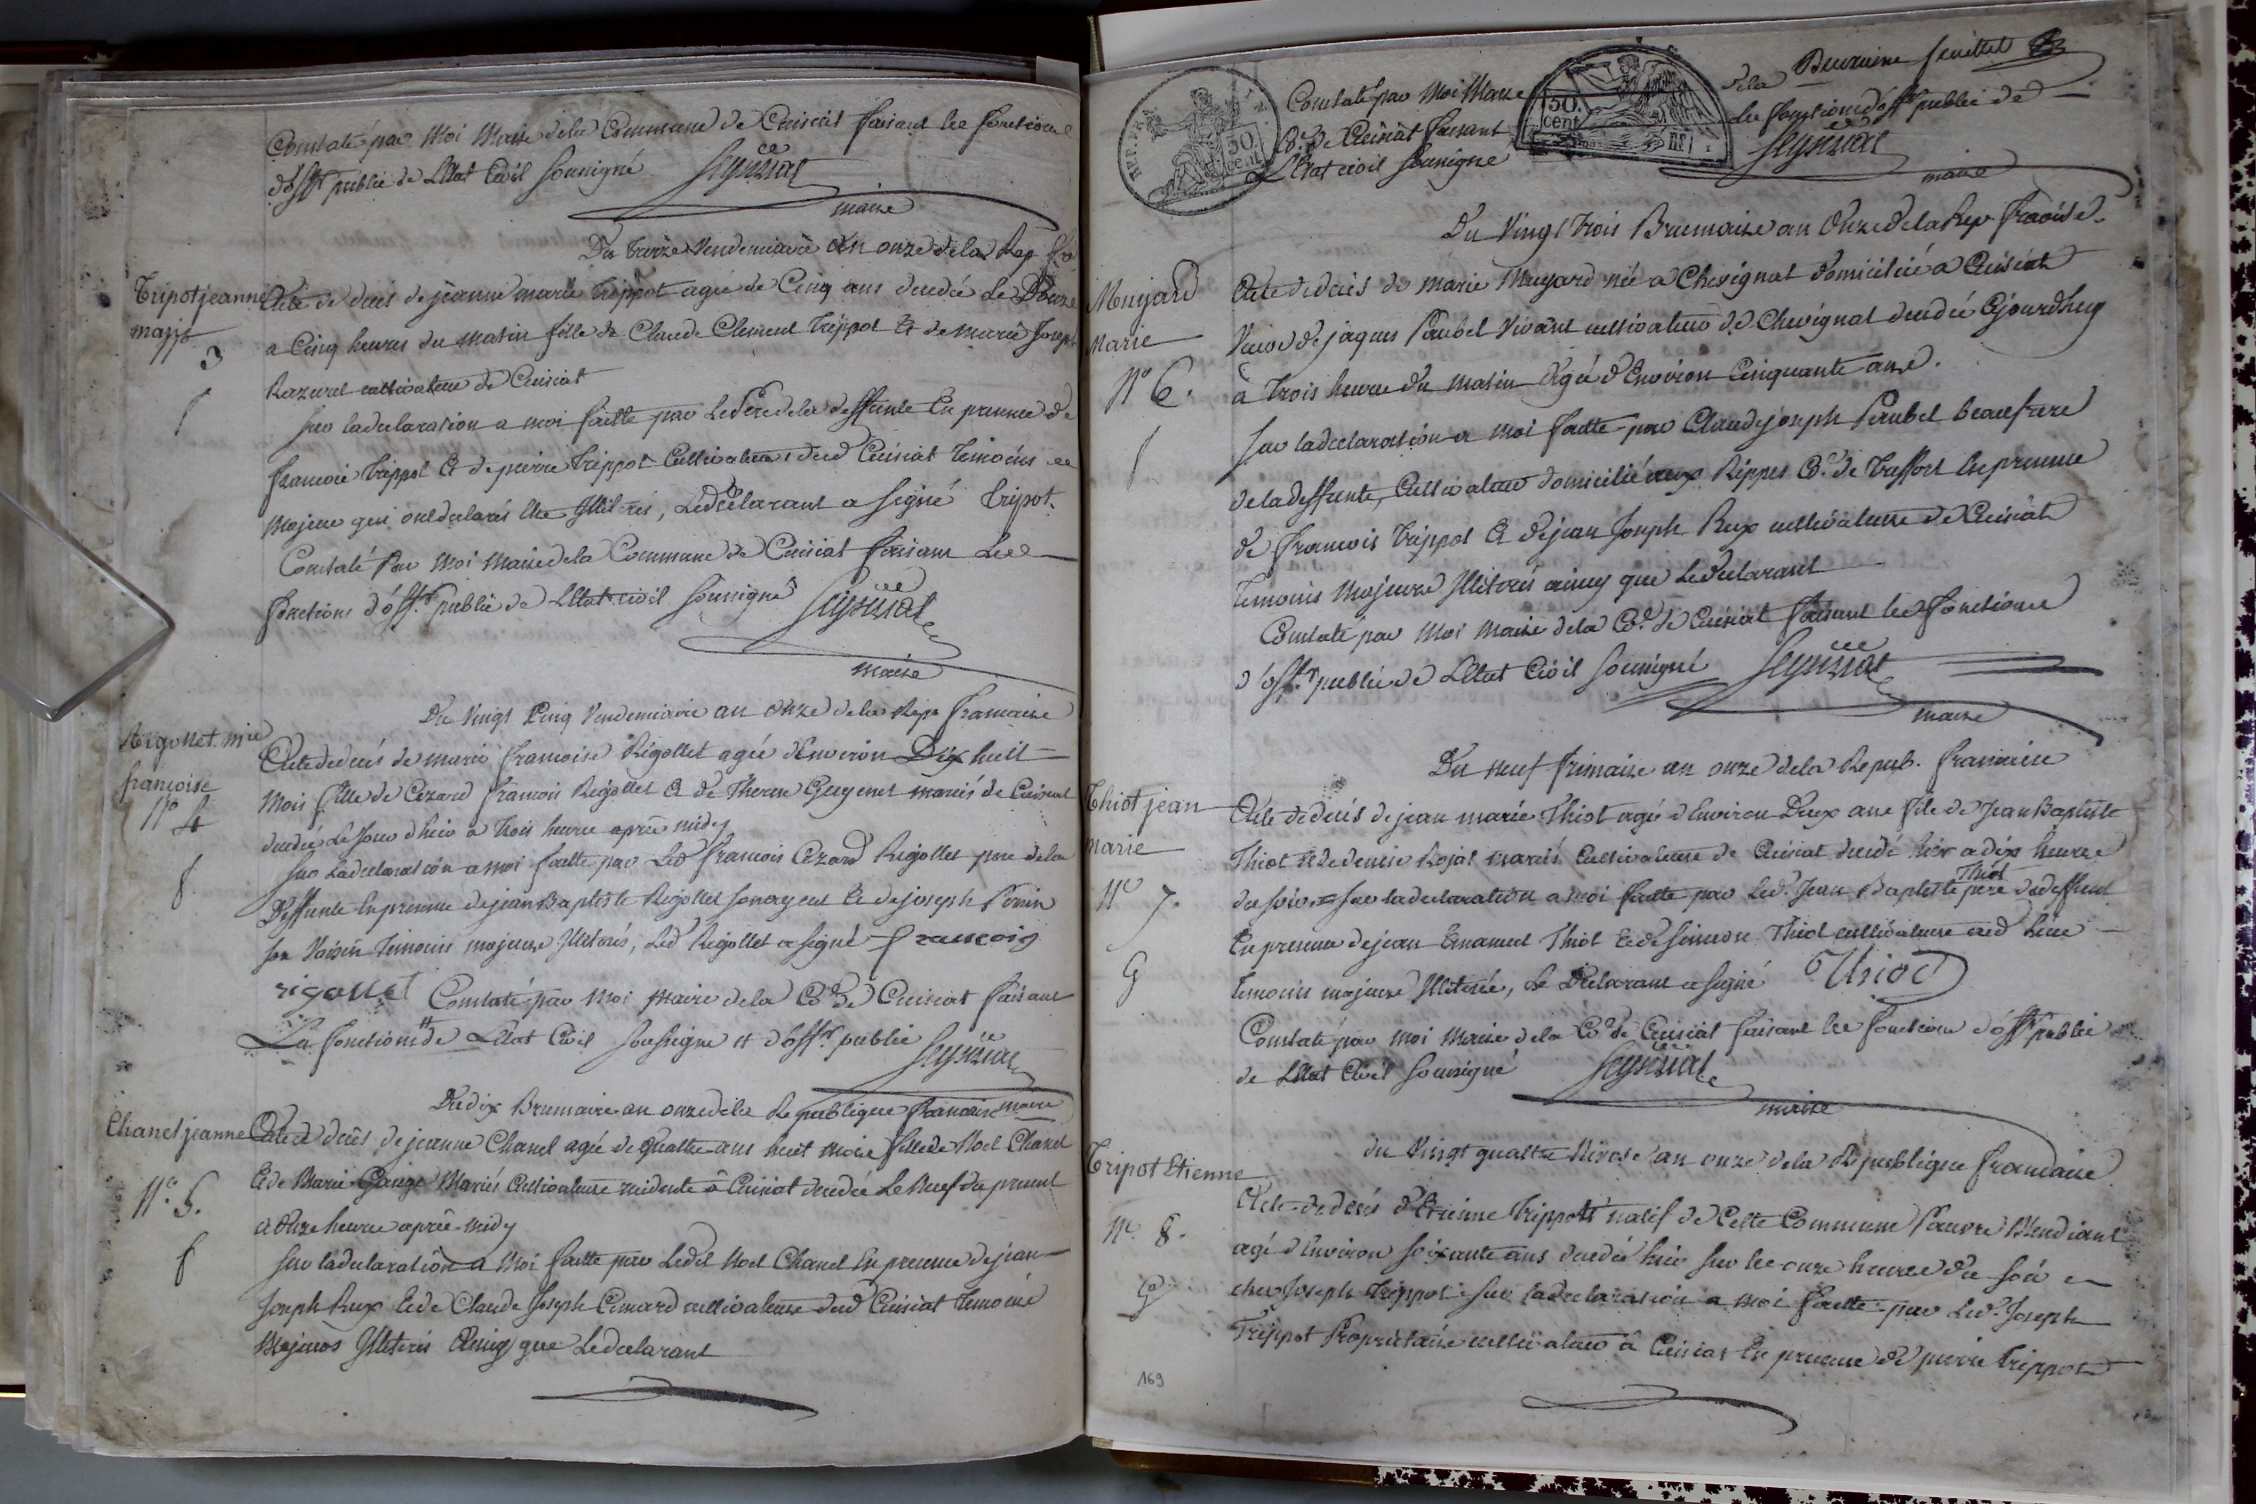 Constaté par Moi Maire de la Commune de Cuisiat faisant les fonctions
d'off.r public de L'Etat Civil Sousigné
maire
Du treize Vendemiaire an onze de la Rep fra
Tripot jeanne
marie
3
Acte de deces de jeanne marie Trippot agée de Cinq ans decedée Le Douze
a Cinq heures du matin fille de Claude Clement Trippot Et de marie Joseph
Razurel cultivateurs de Cuisiat
Sur la declaration a moi faitte par Le Pere de la deffunte En presence de
francois Trippot Et de pierre Trippot Cultivateurs dud Cuisiat Temoins
Majeurs qui ont declarés Etre Illiterés, Le declarant a Signé Tripot.
Constaté Par Moi Maire de la Commune de Cuisiat faisant Les
fonctions d'off.r public de L'Etat civil Sousigné
maire
Du Vingt Cinq Vendemiaire an Onze de la Rep. francaise
Rigollet m.ie
francoise
N.o 4
Acte de deces de marie francoise Rigollet agée d'Environ Dix huit
Mois fille de Cezard francois Rigollet Et de Therese Guyenet mariés de Cuisiat
decedée Le Jour d'hier a trois heures après midy
Sur La declaration a moi faitte par Led francois Cezard Rigollet pere de la
Deffunte En presence de jean Baptiste Rigollet Et de joseph Perrin
Son Voisin Temoins majeurs Illiterés, Led Rigollet a Signé francois
rigollet Constaté par Moi Maire de la Co.e de Cuisiat faisant
Les fonctions # de L'Etat Civil Sousigné # d'off.r public
maire
Du dix Brumaire an onze de la Republique francaise
Chanel jeanne
N.o 5.
Acte de decès de jeanne Chanel agée de quattre ans huit mois fille de Noel Chanel
Et de Marie Gange Mariés Cultivateurs residents à Cuisiat decedée Le Neuf du present
a Onze heures après-midy
Sur la declaration a Moi faitte par Ledit Noel Chanel En presence de jean
Joseph Rux Et de Claude Joseph cultivateurs dud Cuisiat Temoins
Majeurs Illiterés Ainsy que Le declarant
Deuxieme feuillet
Constaté par Moi Maire de la
Co.e de Cuisiat faisant les fonctions d'off.r public de
L'Etat civil Sousigné
maire
50
cent
50
cent
Du Vingt trois Brumaire an Onze de la Rep francaise
Mouyard
Marie
N.o 6.
Acte de deces de marie Mouyard née a Chevignat domiciliée a Cuisiat
Veuve de jaques Paubel Vivant cultivateur de Chevignat decedée Cejourdhuy
à trois heures du matin Agée d'Environ Cinquante ans.
Sur la declaration a moi faitte par Claude joseph Paubel beaufrere
de la deffunte, Cultivateur domicilié aux Rippes C.e de Treffort En presence
de francois Trippot Et de jean Joseph Rux cultivateurs de Cuisiat
Temoins Majeurs Illiterés ainsy que Le declarant
Constaté par Moi Maire de la Co.e de Cuisiat faisant les fonctions
d'off.r public de L'Etat Civil Sousigné
maire
Du neuf frimaire an onze de la Repub. francaise
Thiot jean
Marie
N.o 7.
Acte de deces de jean marie Thiot agé d'Environ Deux ans fils de Jean Baptiste
Thiot et de denise Rojat mariés Cultivateurs de Cuisiat decedé hier a dix heures
du soir = Sur la declaration a moi faitte par Led. Jean Baptiste Thiot pere du deffunt
En presence de jean Emanuel Thiot Et de Simeon Thiot cultivateurs aud lieu
Temoins majeurs Illiterés, Le Declarant a Signé Thiot
Constaté par moi Maire de la Co.e de Cuisiat faisant les fonctions d'off.r public
de L'Etat Civil Sousigné
maire
du Vingt quattre Nivose an onze de la Republique francaise.
Tripot Etienne
N.o 8.
Acte de deces d'Etienne Trippot natif de Cette Commune Pauvre Mendiant
agé d'Environ soixante ans decedé hier sur les onze heures du Soir
chez Joseph Trippot: Sur la declaration a moi faitte par Led. Joseph
Trippot Proprietaire cultivateur à Cuisiat En presence de pierre Trippot
169